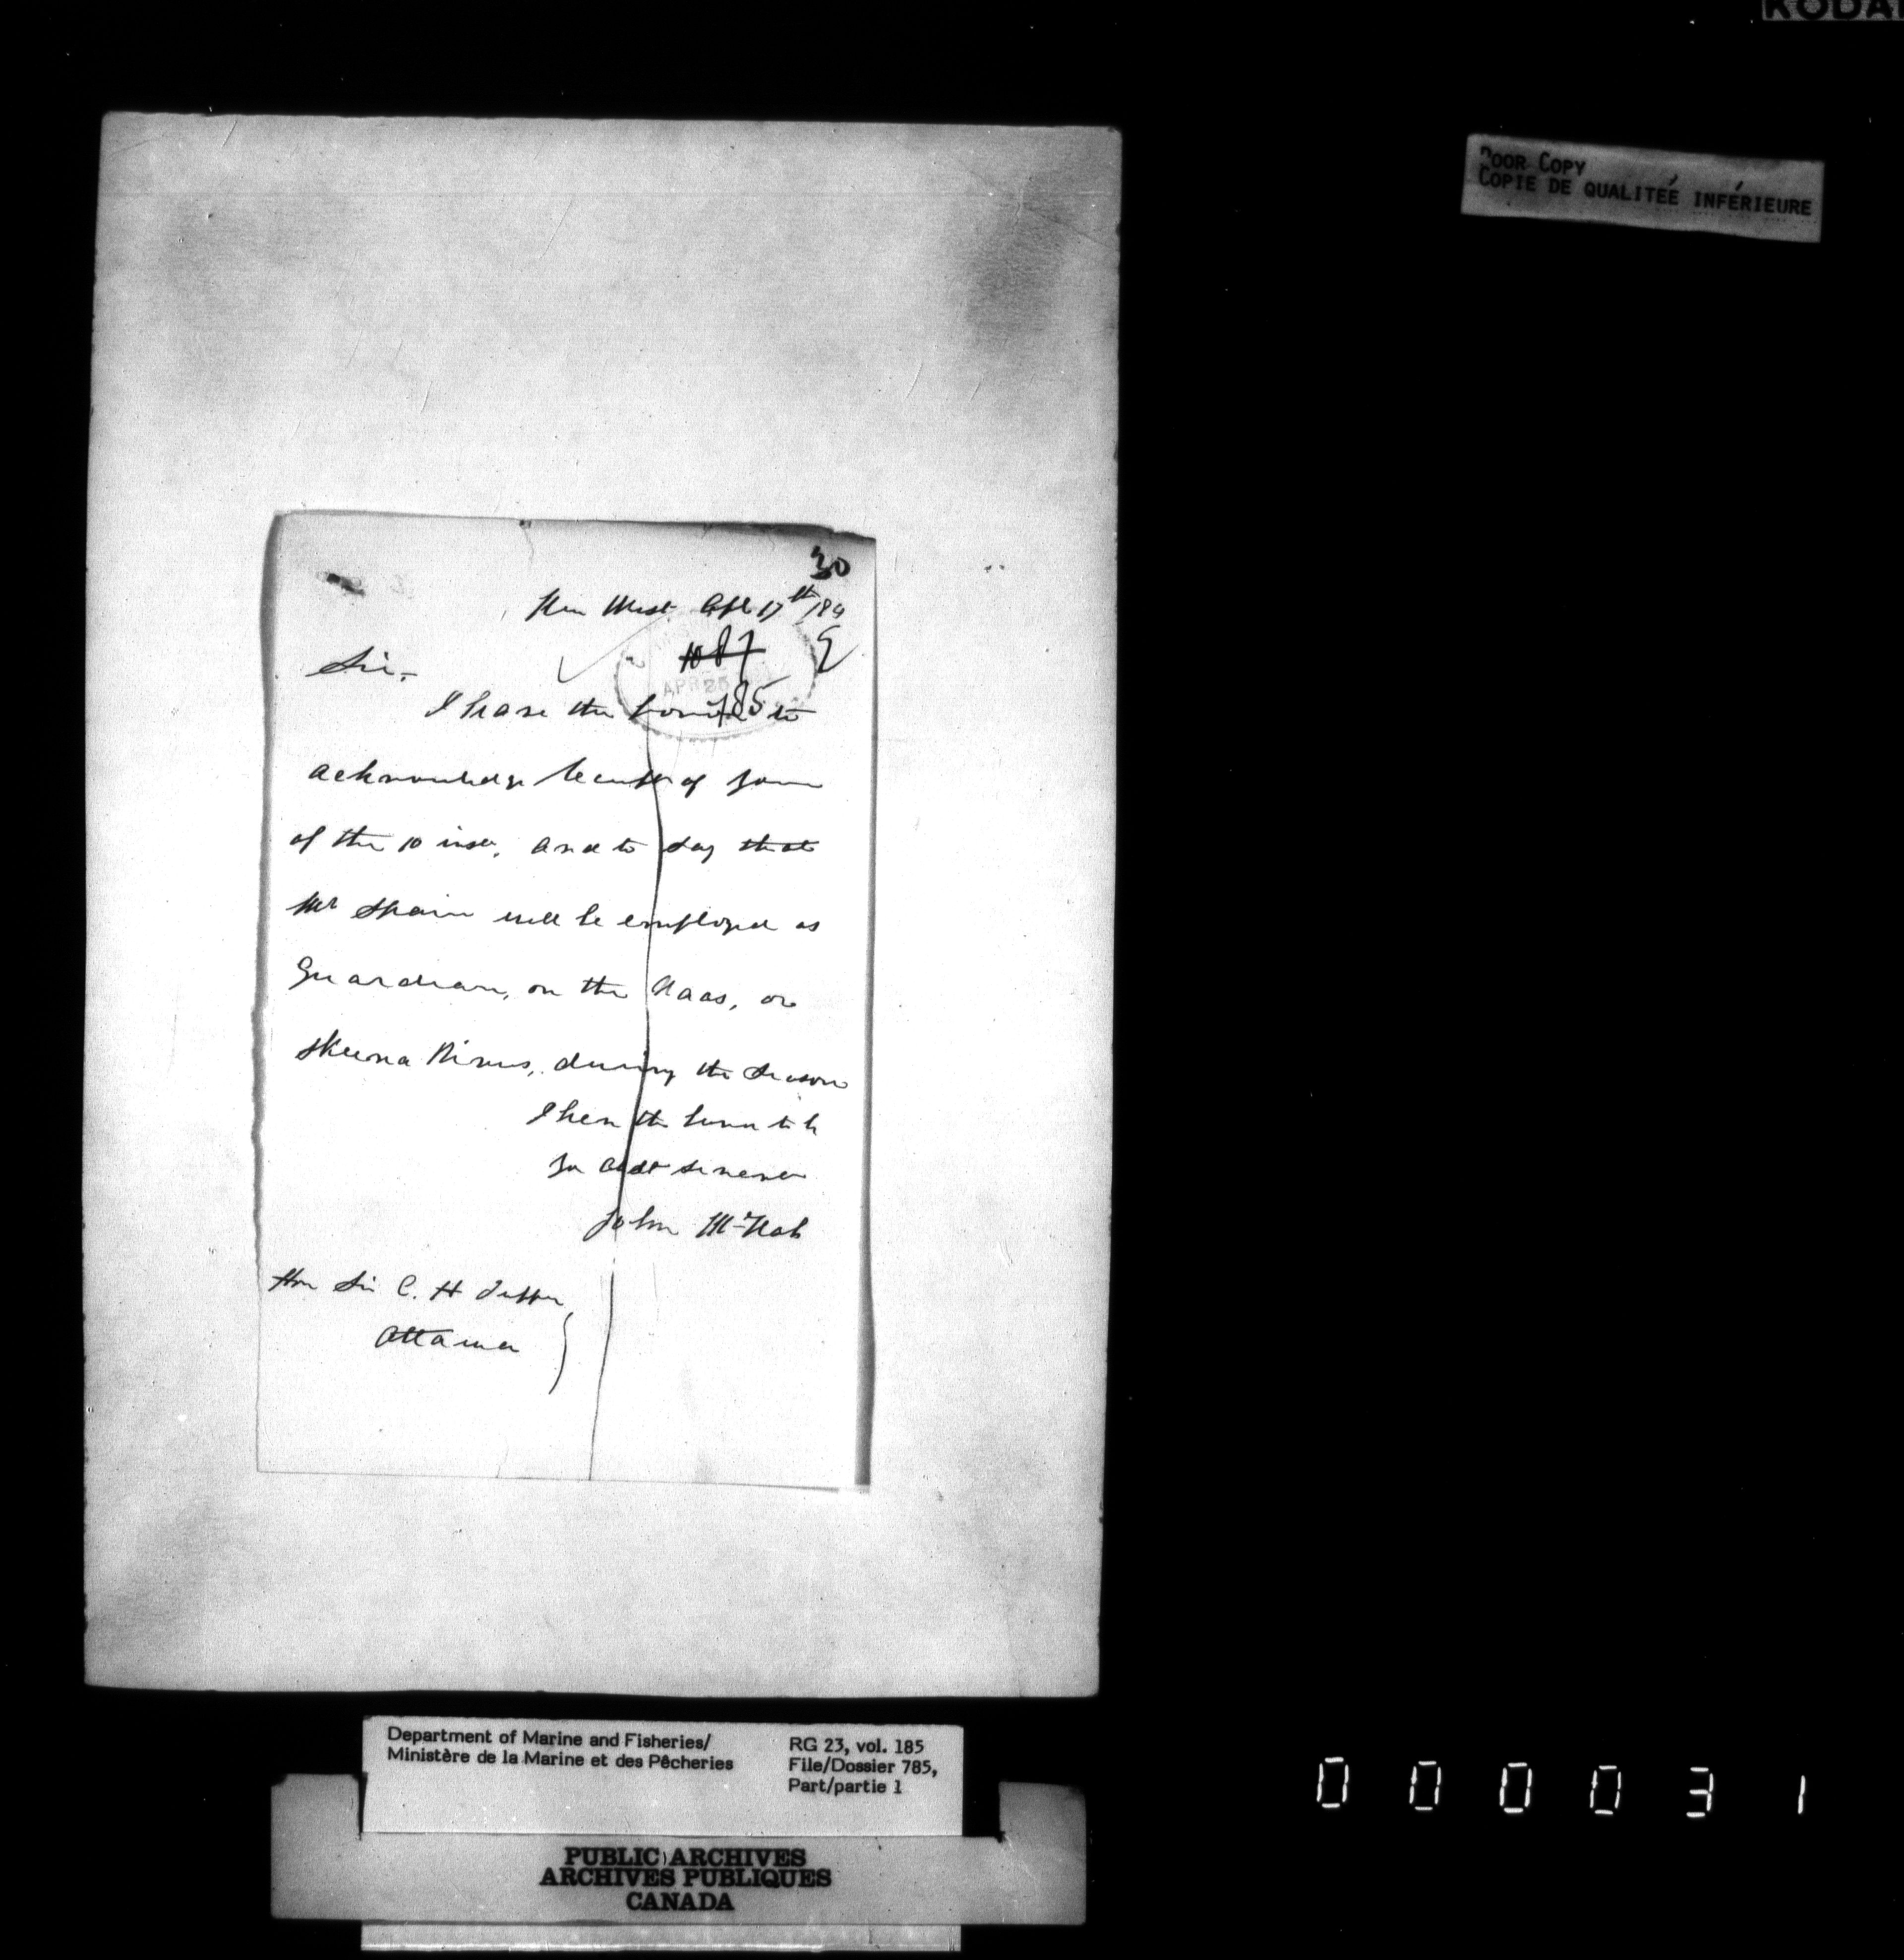 KODAK
POOR COPY
COPIE DE QUALITEÉ INFÉRIEURE
30
New West Apl 17th /94
1087
APR 25
785
Sir,
I have the honor to
acknowledge receipt of your
of the 10 inst, and to say that
Mr Spain will be employed as
Guardian, on the Naas, or
Skeena Rivers, during the season
I have the honor to be
Yr obdt servant
John McNab
Hon Sir C. H Tupper,
Ottawa
Department of Marine and Fisheries/
Ministère de la Marine et des Pêcheries
RG 23, vol. 185
File/Dossier 785,
Part/partie 1
PUBLIC ARCHIVES
ARCHIVES PUBLIQUES
CANADA
000031